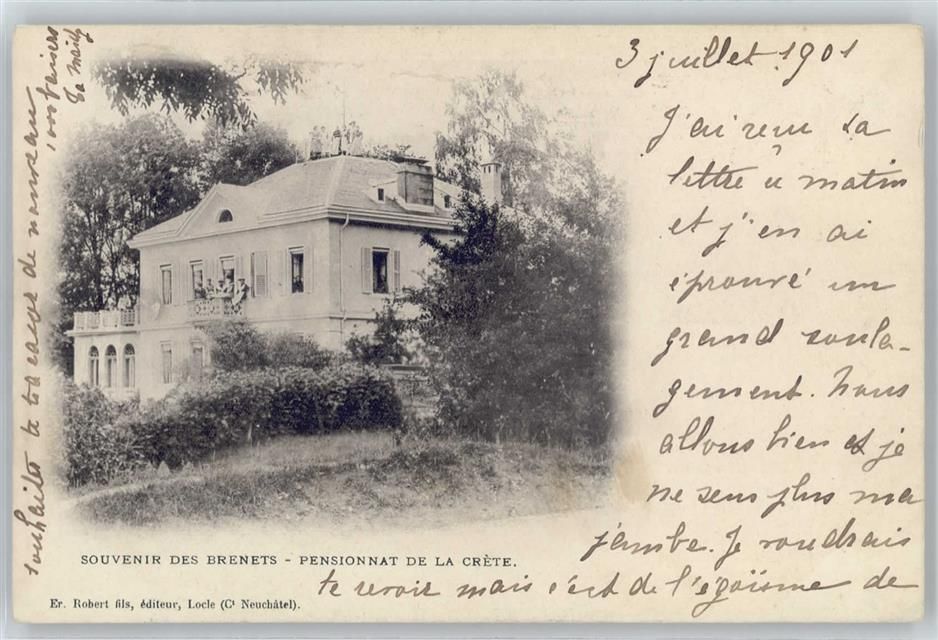 3 juillet 1901
J'ai reçu ta
lettre ce matin
et j'en ai
éprouvé un
grand soula-
gement. Nous
allons bien et je
ne sens plus ma
jambe. Je voudrais
te revoir mais c'est de l'égoïsme de
souhaiter te tracasser de nouveau
SOUVENIR DES BRENETS - PENSIONNAT DE LA CRÈTE.
Er. Robert fils, éditeur, Locle (Ct Neuchâtel).